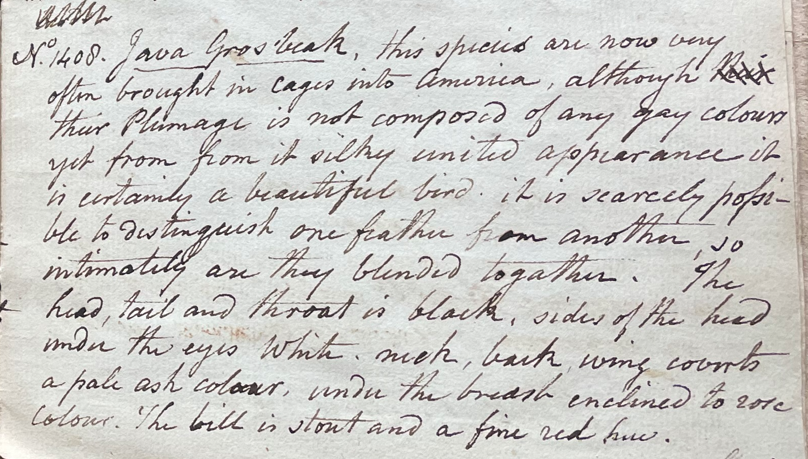 No. 1408. Java Grosbeak, this species are now very
often brought in cages into America, although
their Plumage is not composed of any gay colours
yet from from it silky united appearance it
is certainly a beautiful bird. it is scarcely possi-
ble to distinguish one feather from another, so
intimately are they blended together. The
head, tail and throat is black, sides of the head
under the eyes White. neck, back, wing coverts
a pale ash colour, under the breast enclined to rose
colour. The bill is stout and a fine red hue.